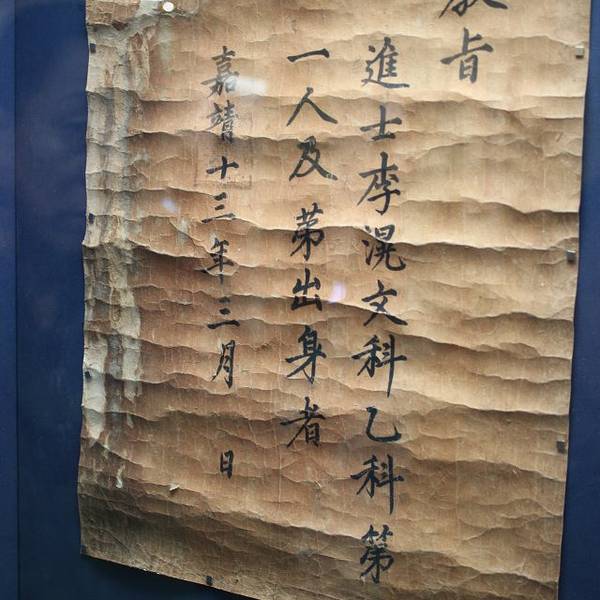 教旨
進士李滉文科乙科第
一人及苐出身者
嘉靖十三年三月 日